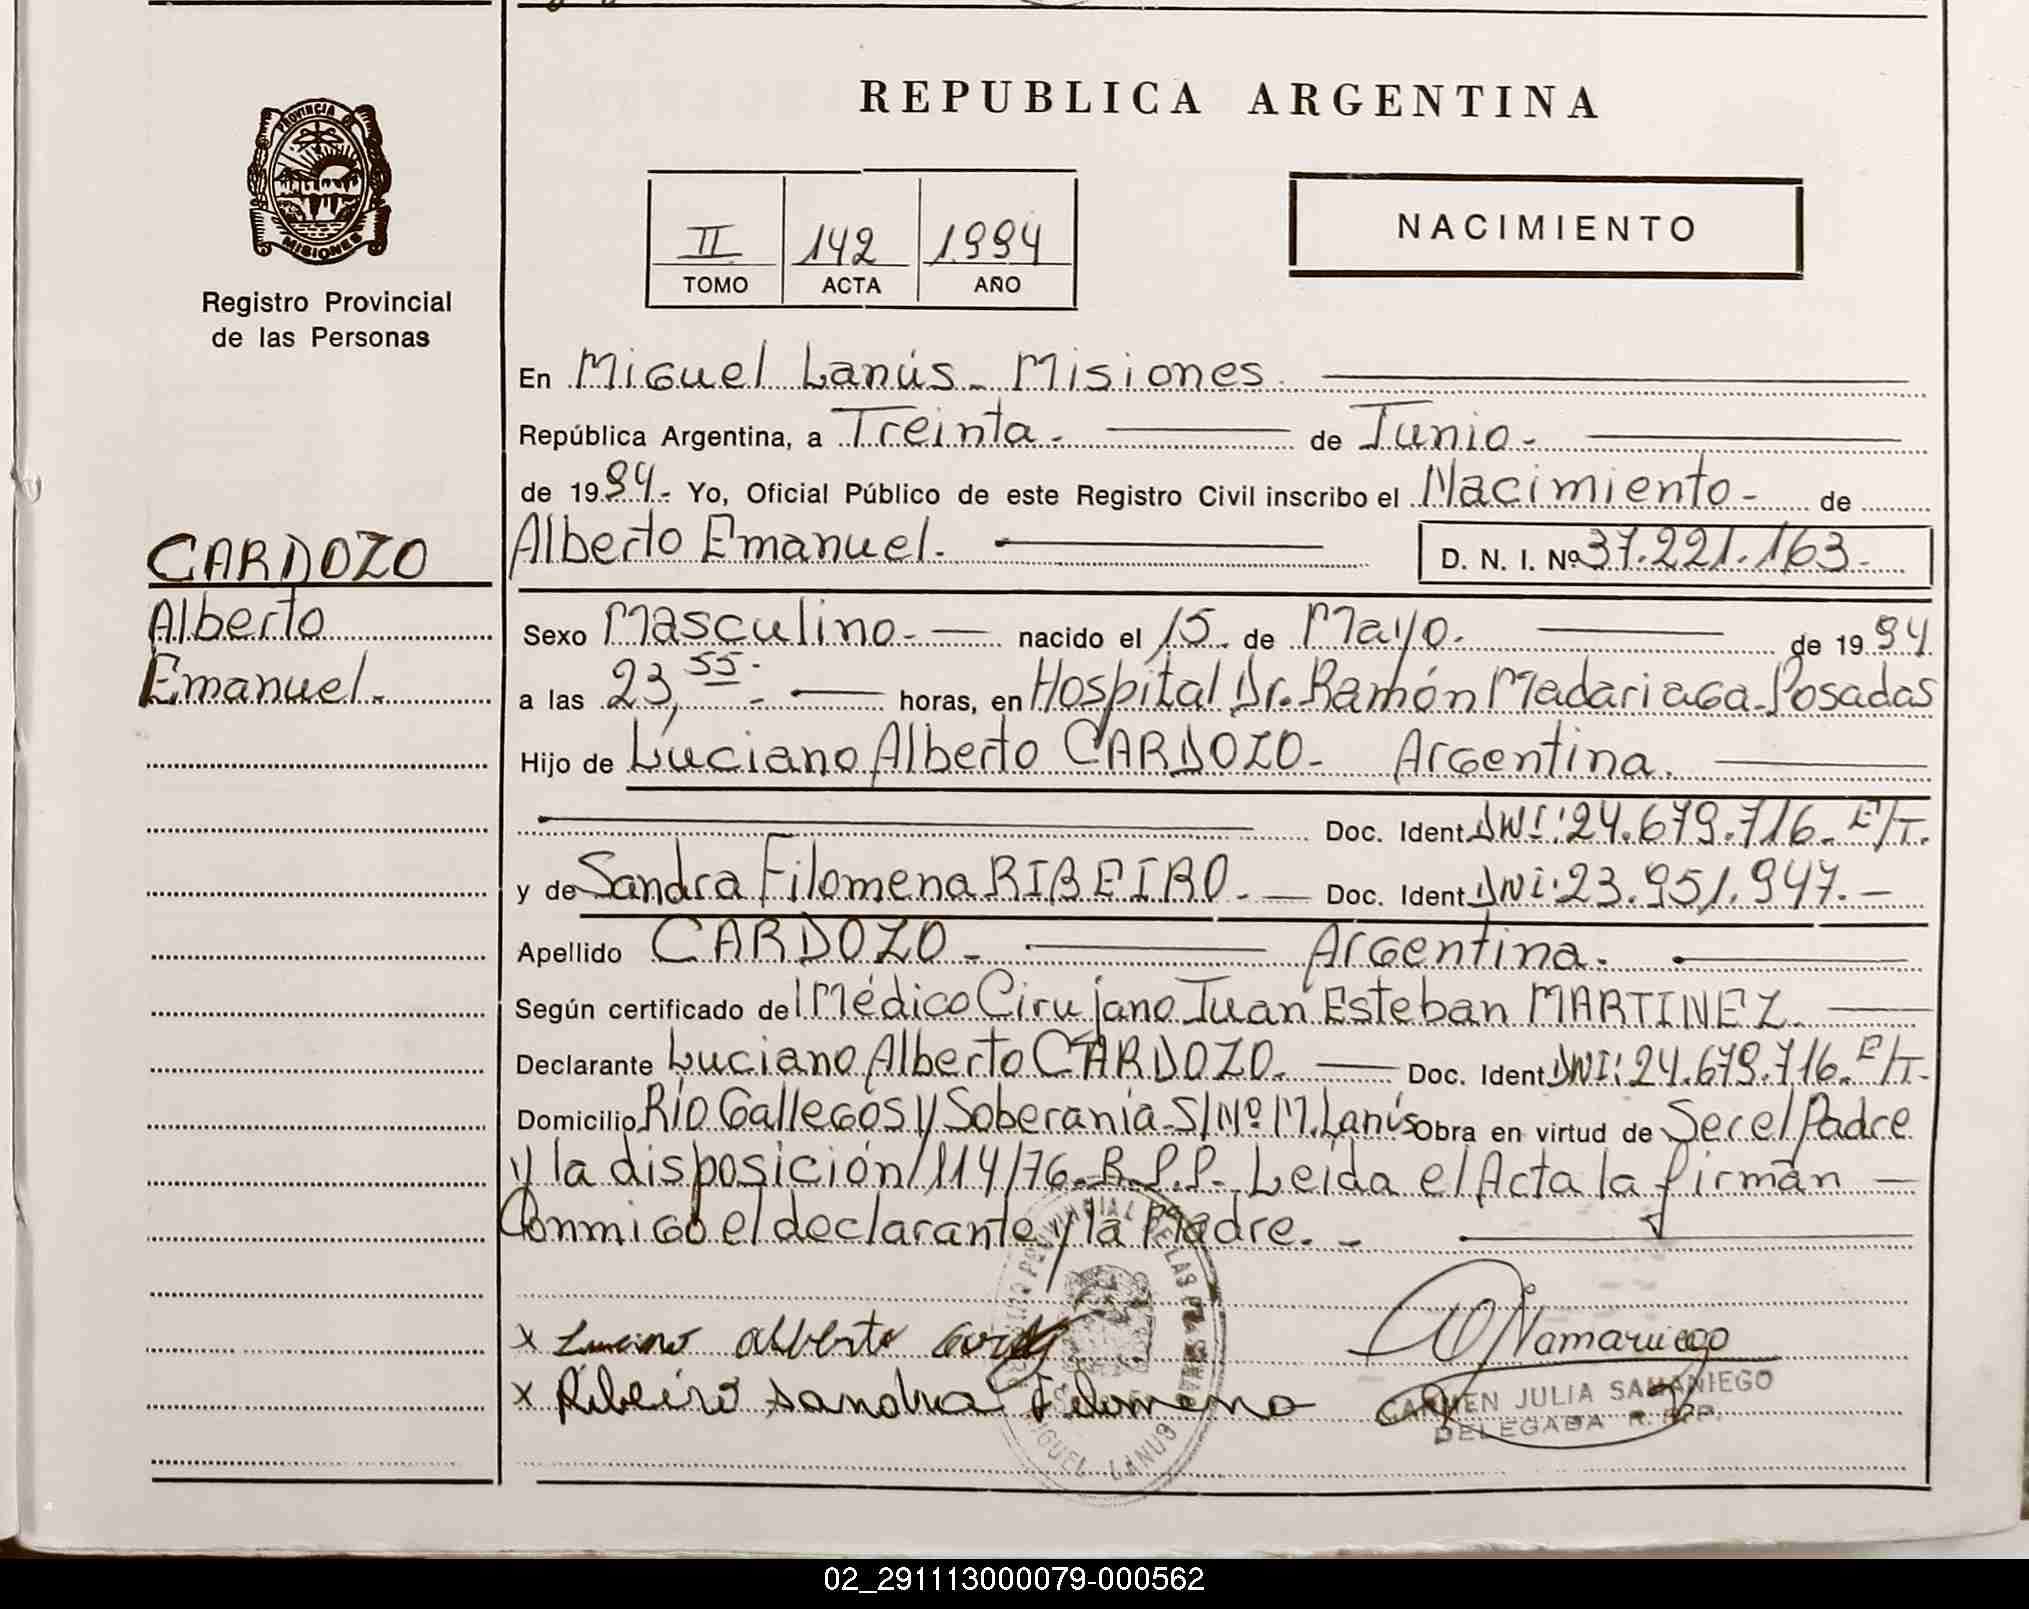 REPUBLICA ARGENTINA
PROVINCIA DE
MISIONES
Registro Provincial
de las Personas
II 142 1994
TOMO ACTA AÑO
NACIMIENTO
En Miguel Lanús - Misiones
República Argentina, a Treinta - de Junio -
de 1994 - Yo, Oficial Público de este Registro Civil inscribo el Nacimiento - de
CARDOZO
Alberto
Emanuel.
Alberto Emanuel. D. N. I. Nº 37.221.163.-
Sexo Masculino - nacido el 15 de Mayo. de 1994
a las 23,55 - horas, en Hospital Dr. Ramón Madariaga - Posadas
Hijo de Luciano Alberto CARDOZO - Argentina.
Doc. Ident. DNI: 24.679.716. E/T.
y de Sandra Filomena RIBEIRO. - Doc. Ident. DNI: 23.951.947. -
Apellido CARDOZO - Argentina.
Según certificado del Médico Cirujano Juan Esteban MARTINEZ.
Declarante Luciano Alberto CARDOZO. Doc. Ident. DNI: 24.679.716. E/T.
Domicilio Río Gallegos y Soberanía - S/Nº M. Lanús Obra en virtud de Ser el Padre
y la disposición 114/76 - R.P.P. Leída el Acta la firman
Conmigo el declarante y la Madre. -
x Luciano Alberto
x Ribeiro Sandra Filomena
CARMEN JULIA SAMANIEGO
DELEGADA R.P.P.
MIGUEL LANUS
02_291113000079-000562